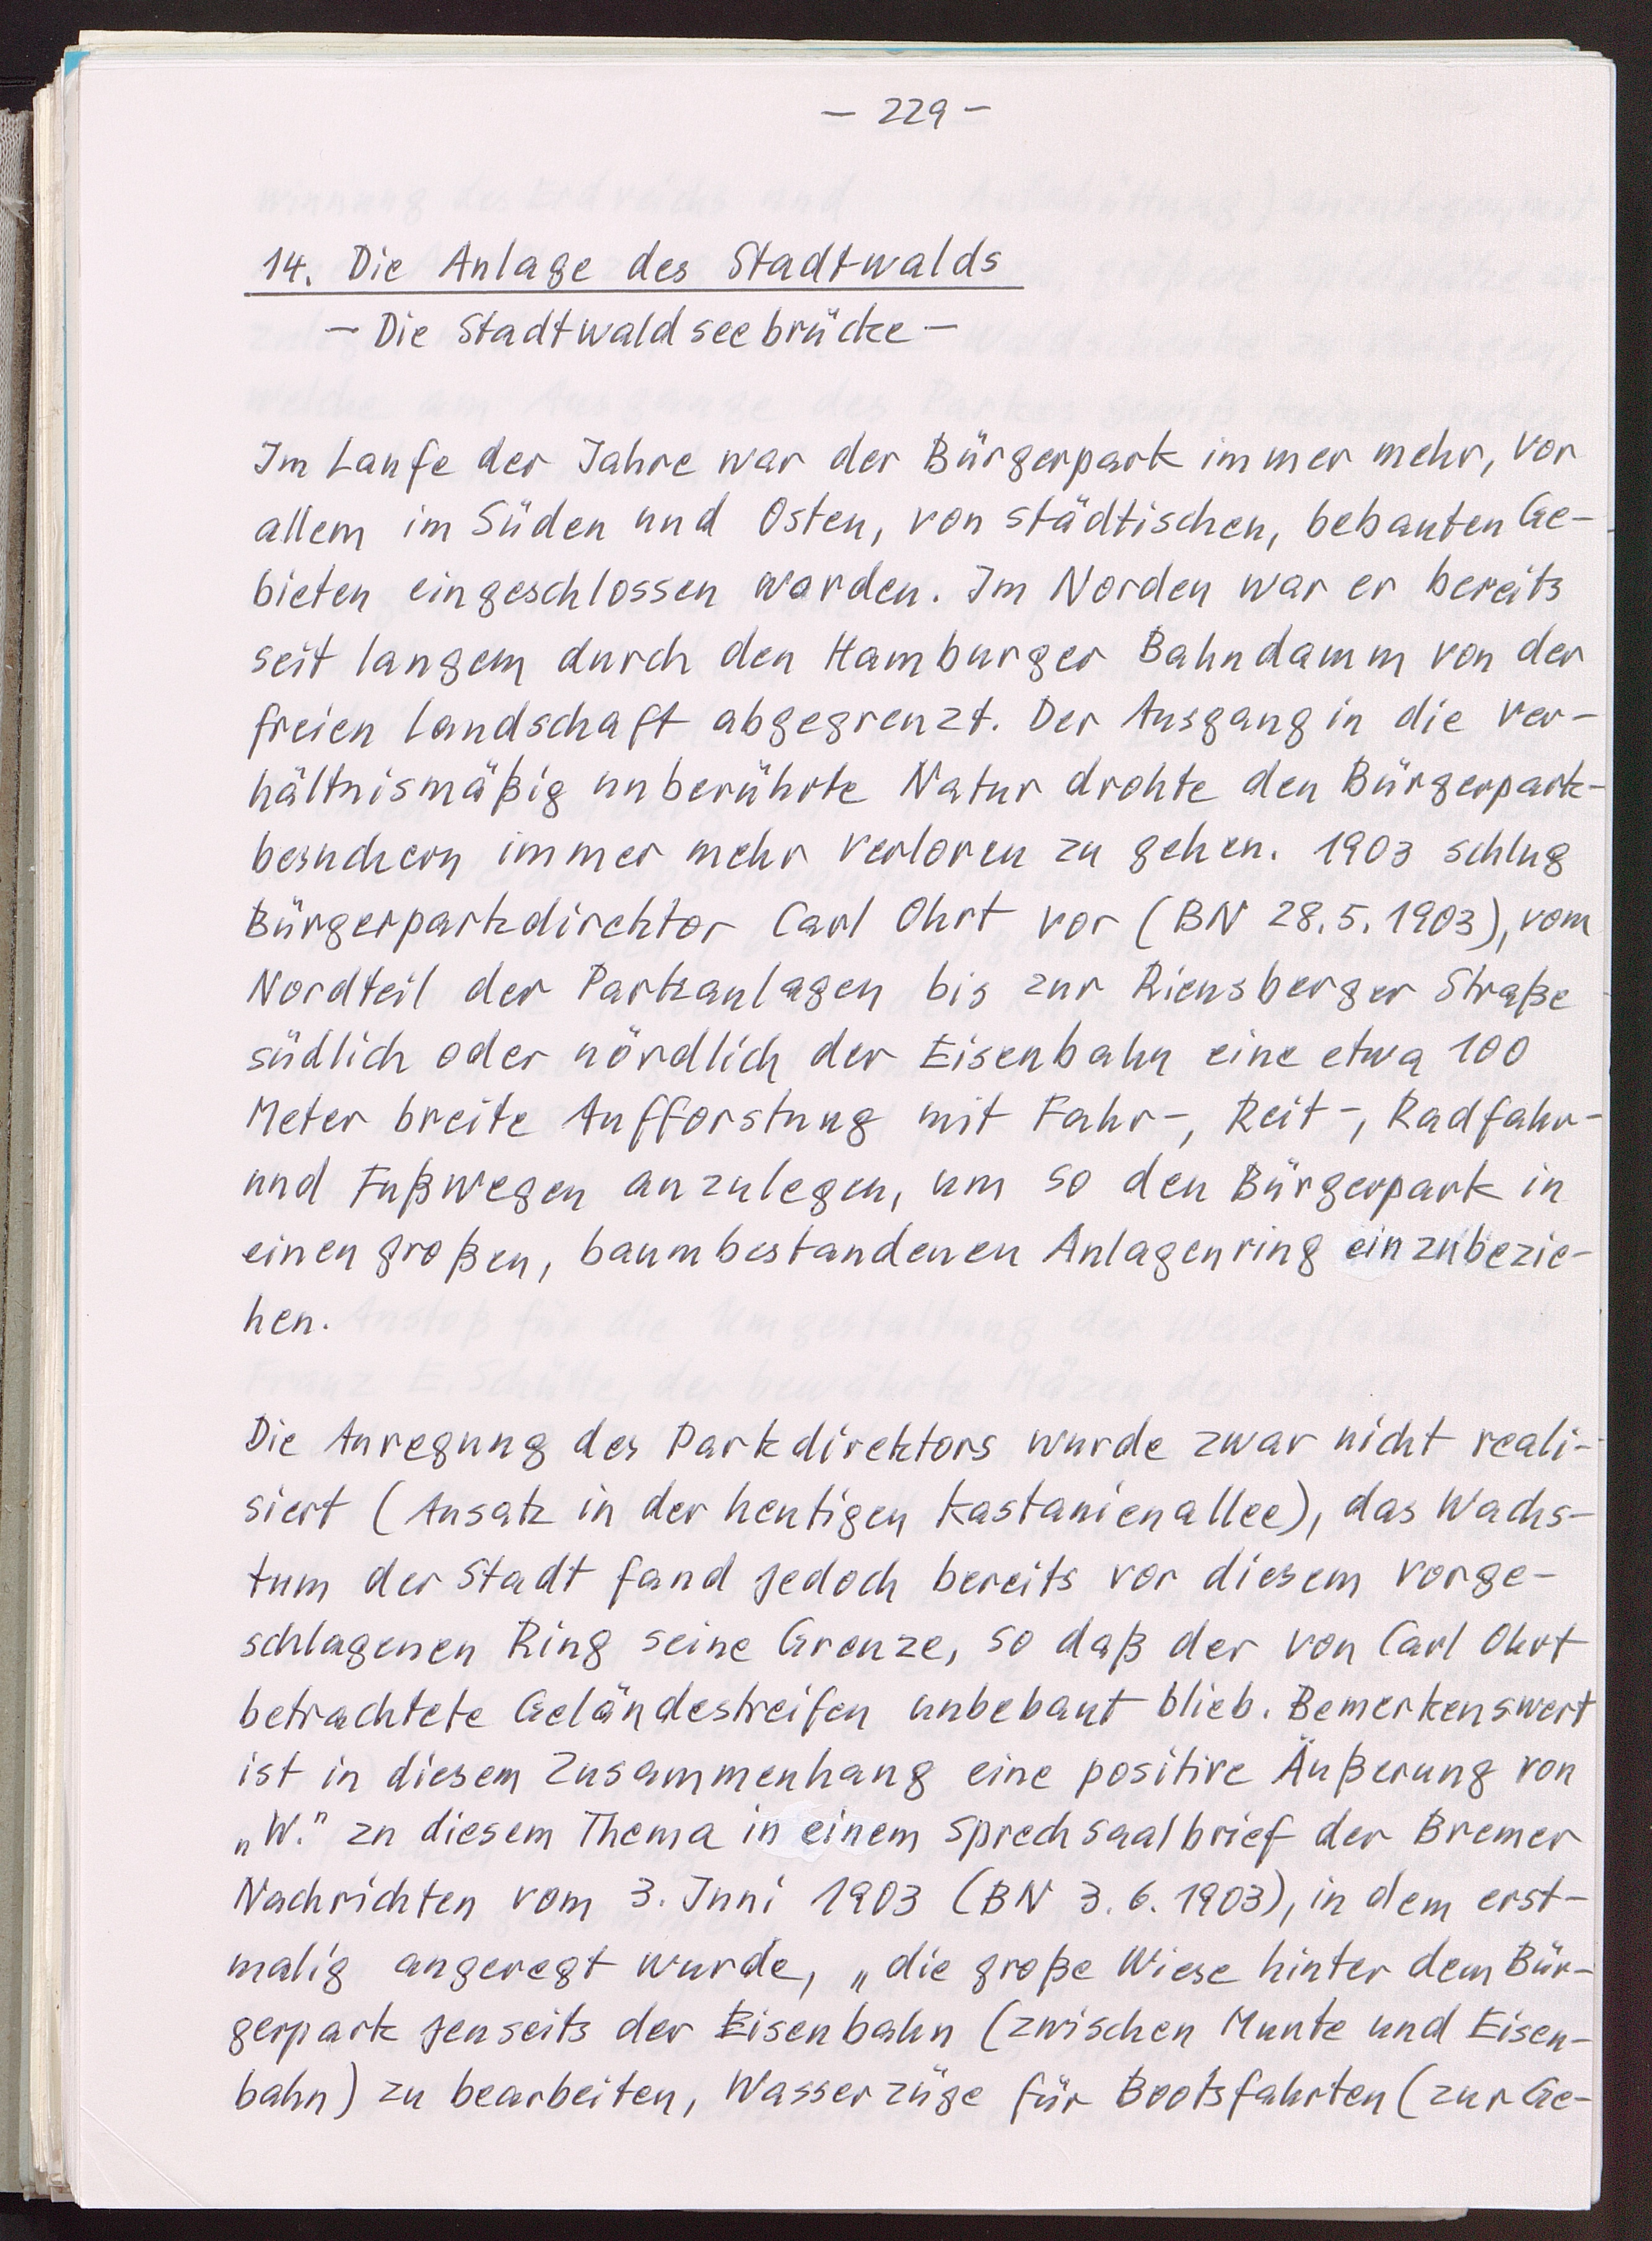 – 229 –
14. Die Anlage des Stadtwalds
– Die Stadtwaldseebrücke –
Im Laufe der Jahre war der Bürgerpark immer mehr, vor
allem im Süden und Osten, von städtischen, bebauten Ge-
bieten eingeschlossen worden. Im Norden war er bereits
seit langem durch den Hamburger Bahndamm von der
freien Landschaft abgegrenzt. Der Ausgang in die ver-
hältnismäßig unberührte Natur drohte den Bürgerpark-
besuchern immer mehr verloren zu gehen. 1903 schlug
Bürgerparkdirektor Carl Ohrt vor (BN 28.5.1903), vom
Nordteil der Parkanlagen bis zur Riensberger Straße
südlich oder nördlich der Eisenbahn eine etwa 100
Meter breite Aufforstung mit Fahr-, Reit-, Radfahr-
und Fußwegen anzulegen, um so den Bürgerpark in
einen großen, baumbestandenen Anlagenring einzubezie-
hen.
Die Anregung des Parkdirektors wurde zwar nicht reali-
siert (Ansatz in der heutigen Kastanienallee), das Wachs-
tum der Stadt fand jedoch bereits vor diesem vorge-
schlagenen Ring seine Grenze, so daß der von Carl Ohrt
betrachtete Geländestreifen unbebaut blieb. Bemerkenswert
ist in diesem Zusammenhang eine positive Äußerung von
„W." zu diesem Thema in einem Sprechsaalbrief der Bremer
Nachrichten vom 3. Juni 1903 (BN 3.6.1903), in dem erst-
malig angeregt wurde, „die große Wiese hinter dem Bür-
gerpark jenseits der Eisenbahn (zwischen Munte und Eisen-
bahn) zu bearbeiten, Wasserzüge für Bootsfahrten (zur Ge-